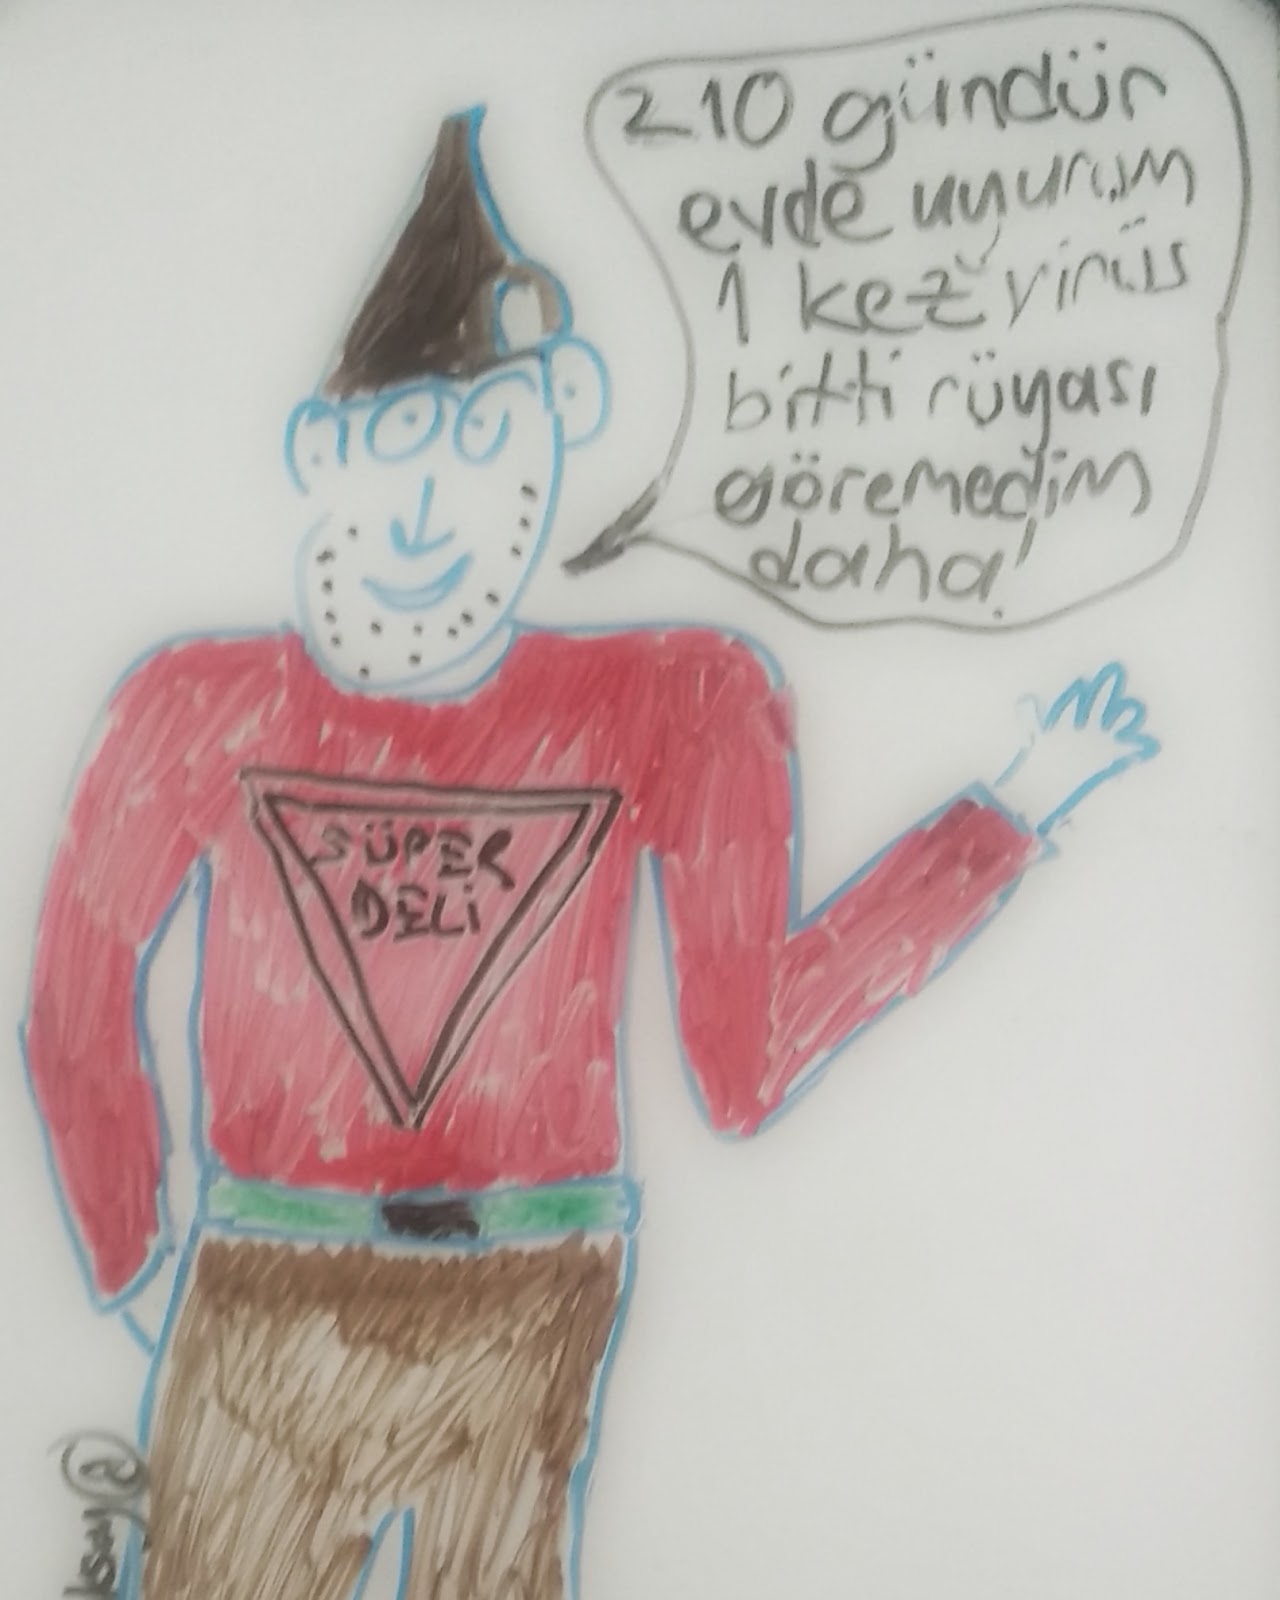 210 gündür
evde uyurum
1 kez virüs
bitti rüyası
göremedim
daha!
SÜPER
DELİ